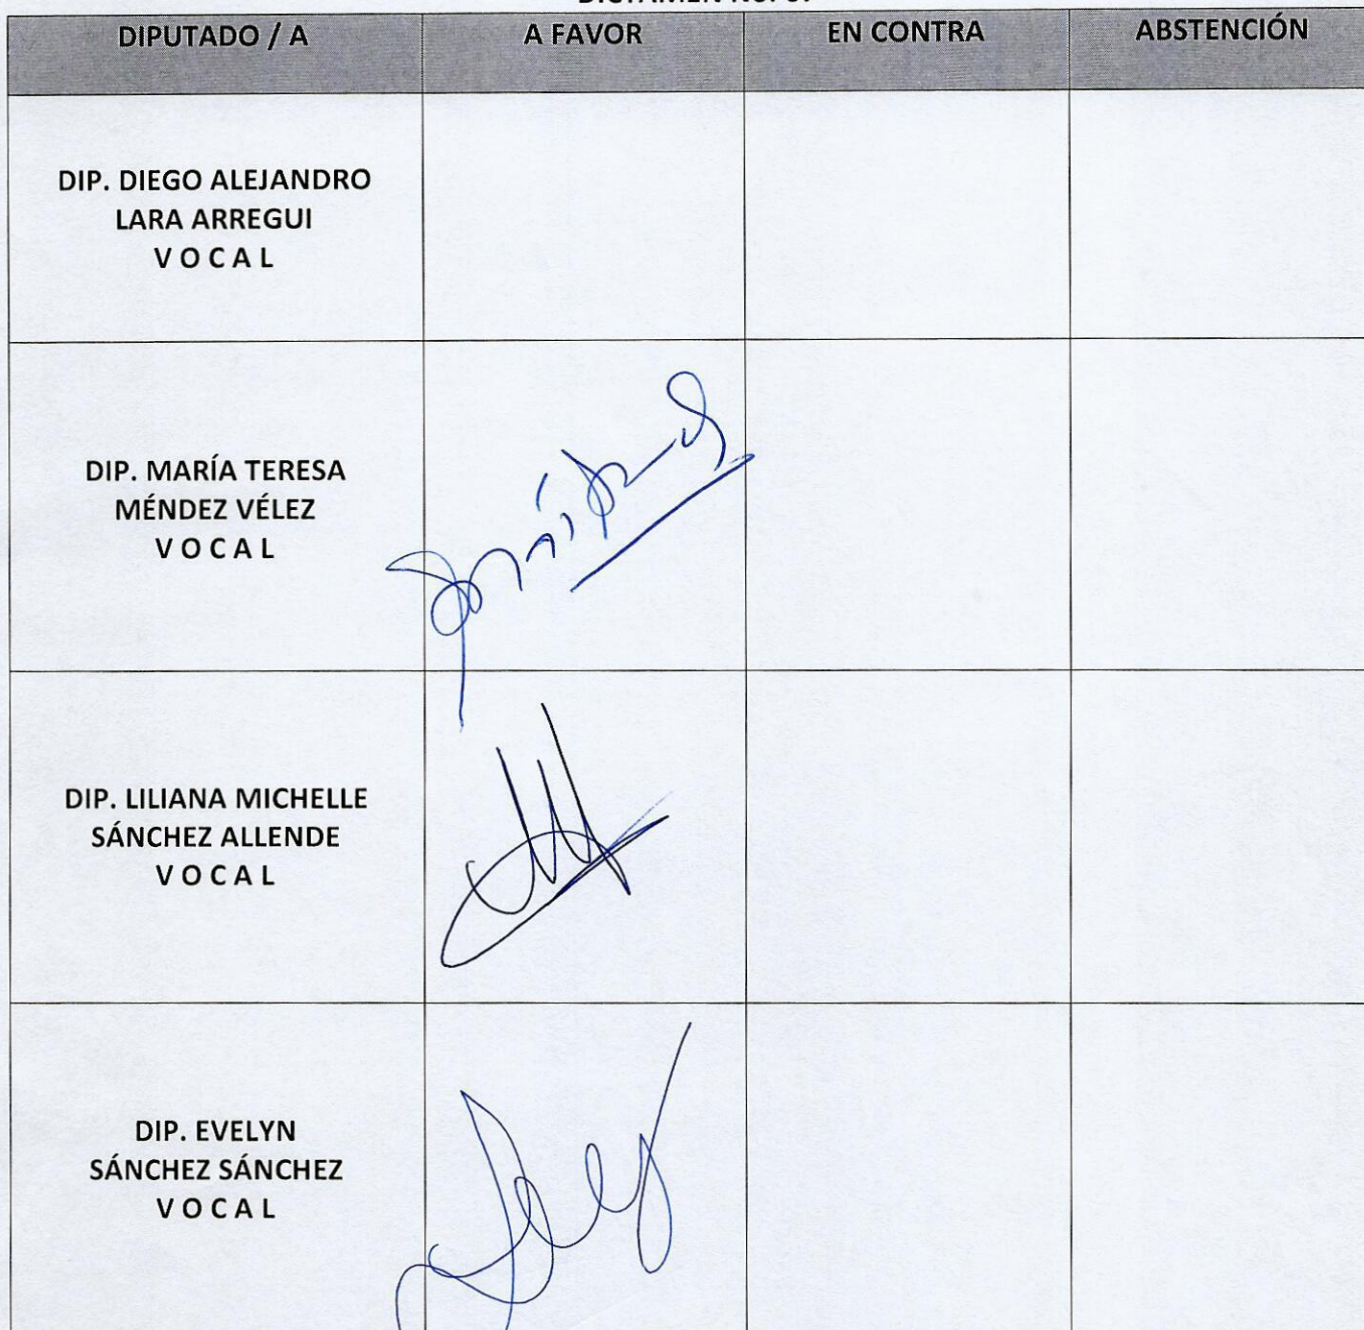 DIPUTADO / A
A FAVOR
EN CONTRA
ABSTENCIÓN
DIP. DIEGO ALEJANDRO
LARA ARREGUI
V O C A L
DIP. MARÍA TERESA
MÉNDEZ VÉLEZ
V O C A L
DIP. LILIANA MICHELLE
SÁNCHEZ ALLENDE
V O C A L
DIP. EVELYN
SÁNCHEZ SÁNCHEZ
V O C A L